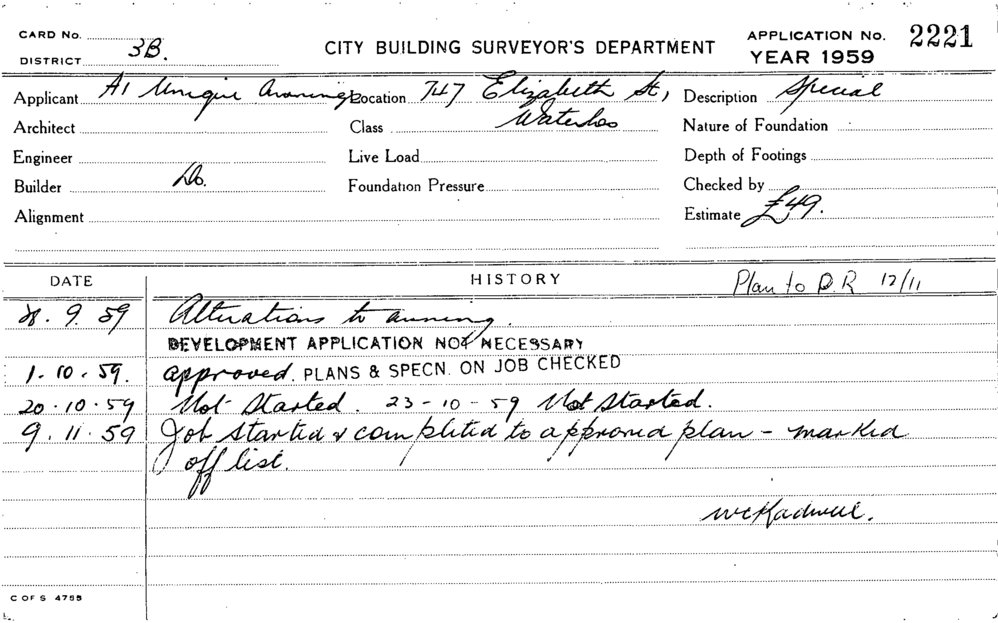 CARD No.
DISTRICT 3B.
CITY BUILDING SURVEYOR'S DEPARTMENT
APPLICATION No. 2221
YEAR 1959
Applicant A1 Unique Awnings Location 747 Elizabeth St, Description Special
Architect Class Waterloo Nature of Foundation
Engineer Live Load Depth of Footings
Builder Do. Foundation Pressure Checked by
Alignment Estimate £49.
DATE HISTORY Plan to D.R 12/11
9. 59 Alterations to awning.
DEVELOPMENT APPLICATION NOT NECESSARY
1. 10. 59. approved. PLANS & SPECN. ON JOB CHECKED
20. 10. 59 Not Started. 23-10-59 Not Started.
9. 11. 59 Job started & completed to approved plan - marked
off list.
C OF S 4755